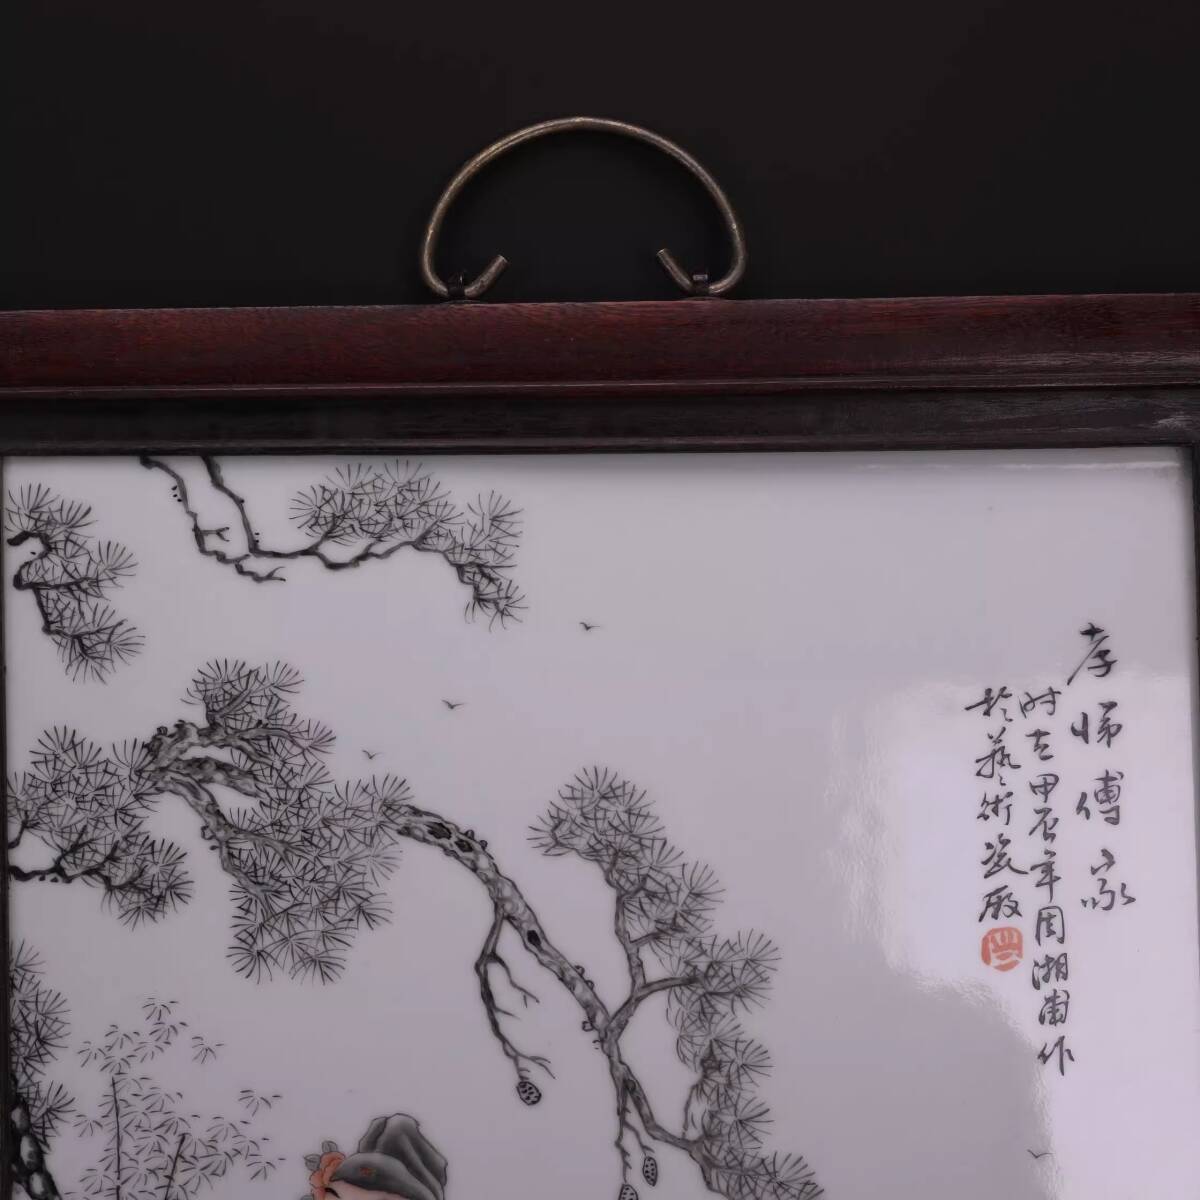 孝悌傳家
时在甲辰年周湘甫作
於藝術瓷廠